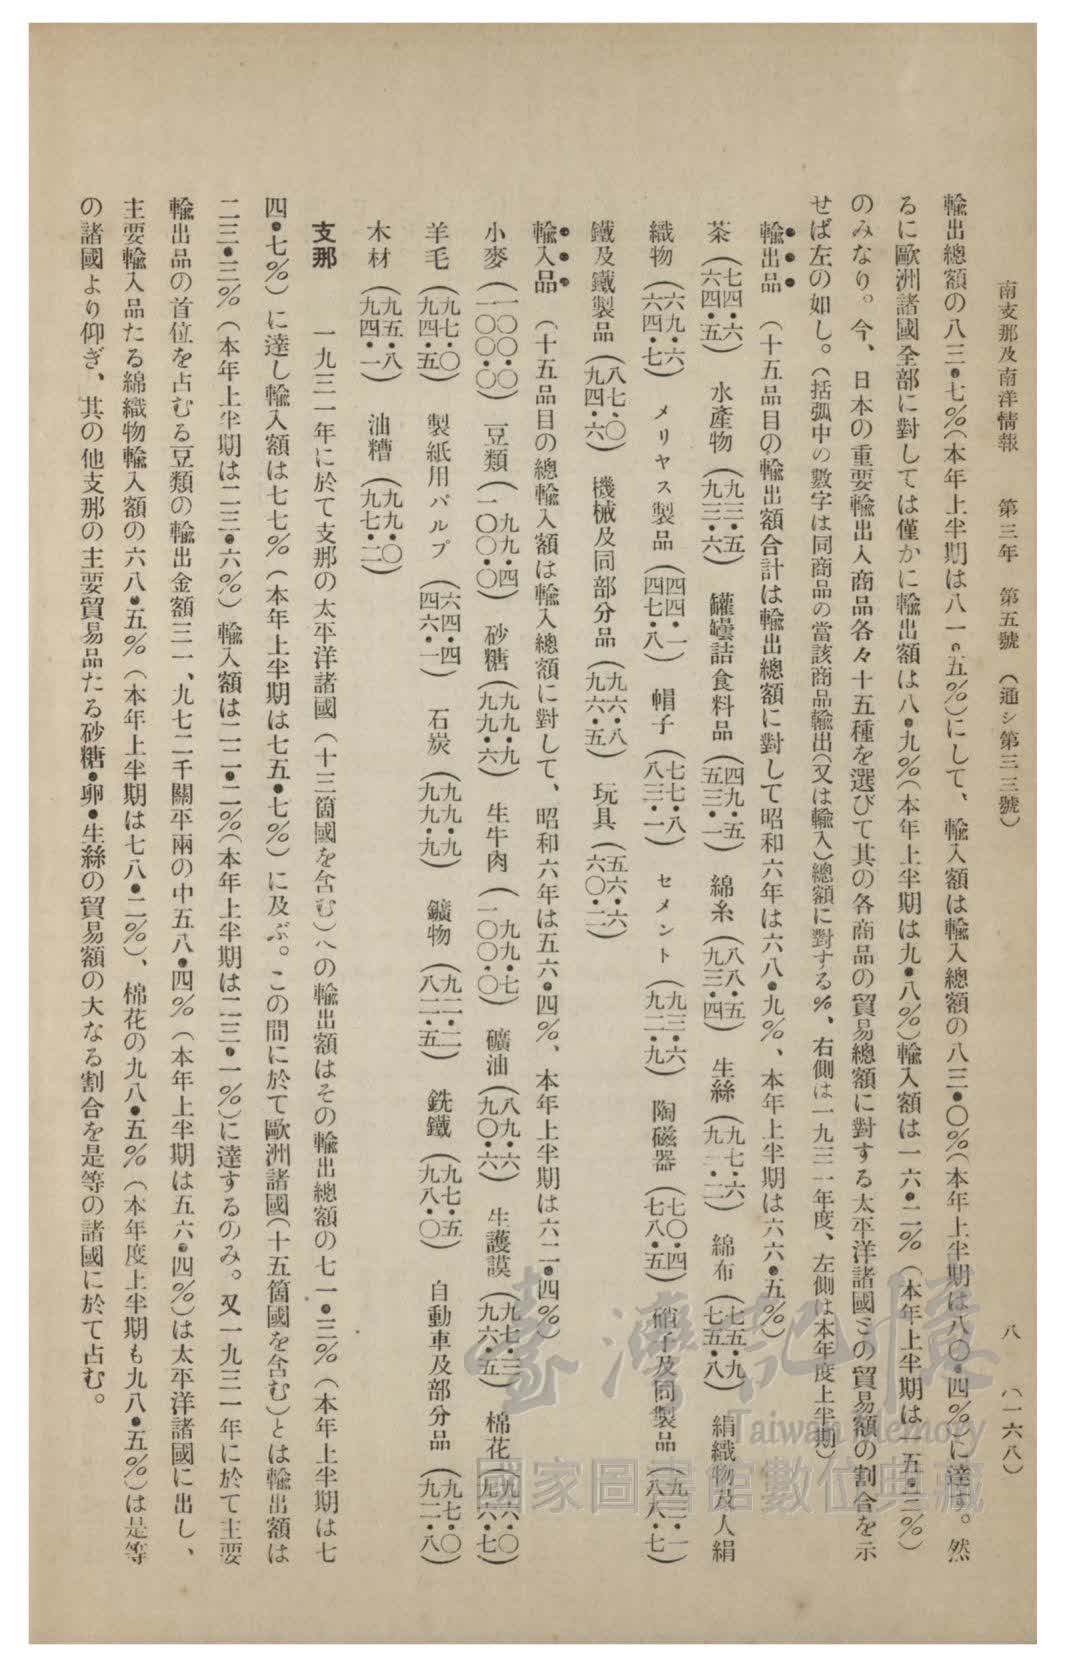 南支那及南洋情報　第三年　第五號　（通シ第三三號）　八　（一六八）
輸出總額の八三•七％（本年上半期は八一•五％）にして、輸入額は輸入總額の八三•〇％（本年上半期は八〇•四％）に達す。然
るに歐洲諸國全部に對しては僅かに輸出額は八•九％（本年上半期は九•八％）輸入額は一六•二％（本年上半期は一五•三％）
のみなり。今、日本の重要輸出入商品各々十五種を選びて其の各商品の貿易總額に對する太平洋諸國との貿易額の割合を示
せば左の如し。（括弧中の數字は同商品の當該商品輸出（又は輸入）總額に對する％、右側は一九三一年度、左側は本年度上半期）
輸出品　（十五品目の輸出額合計は輸出總額に對して昭和六年は六八•九％、本年上半期は六六•五％）
茶（七四•六 六四•五）　水產物（九三•五 九三•六）　罐罎詰食料品（四九•五 五三•一）　綿糸（八八•五 九三•四）　生絲（九七•六 九一•二）　綿布（七五•九 七五•八）　絹織物及人絹
織物（六九•六 六四•七）　メリヤス製品（四四•一 四七•八）　帽子（七七•八 八三•一）　セメント（九三•六 九二•九）　陶磁器（七〇•四 七八•五）　硝子及同製品（九二•一 八八•七）
鐵及鐵製品（八七•〇 九四•六）　機械及同部分品（九六•八 九六•五）　玩具（五六•六 六〇•二）
輸入品　（十五品目の總輸入額は輸入總額に對して、昭和六年は五六•四％、本年上半期は六二•四％）
小麥（一〇〇•〇 一〇〇•〇）　豆類（九九•四 一〇〇•〇）　砂糖（九九•九 九九•六）　生牛肉（九九•七 一〇〇•〇）　礦油（八九•六 九〇•六）　生護謨（九七•三 九六•五）　棉花（九六•〇 九六•七）
羊毛（九七•〇 九四•五）　製紙用パルプ（六四•四 四六•一）　石炭（九九•九 九九•九）　鑛物（九二•二 八二•五）　銑鐵（九七•五 九八•〇）　自動車及部分品（九七•〇 九二•八）
木材（九五•八 九四•一）　油糟（九九•〇 九七•二）
支那　一九三一年に於て支那の太平洋諸國（十三箇國を含む）への輸出額はその輸出總額の七一•三％（本年上半期は七
四•七％）に達し輸入額は七七％（本年上半期は七五•七％）に及ぶ。この間に於て歐洲諸國（十五箇國を含む）とは輸出額は
二三•三％（本年上半期は二三•六％）輸入額は二二•二％（本年上半期は二三•一％）に達するのみ。又一九三一年に於て主要
輸出品の首位を占むる豆類の輸出金額三一、九七二千關平兩の中五八•四％（本年上半期は五六•四％）は太平洋諸國に出し、
主要輸入品たる綿織物輸入額の六八•五％（本年上半期は七八•二％）、棉花の九八•五％（本年度上半期も九八•五％）は是等
の諸國より仰ぎ、其の他支那の主要貿易品たる砂糖•卵•生絲の貿易額の大なる割合を是等の諸國に於て占む。
臺灣記憶
Taiwan Memory
國家圖書館數位典藏